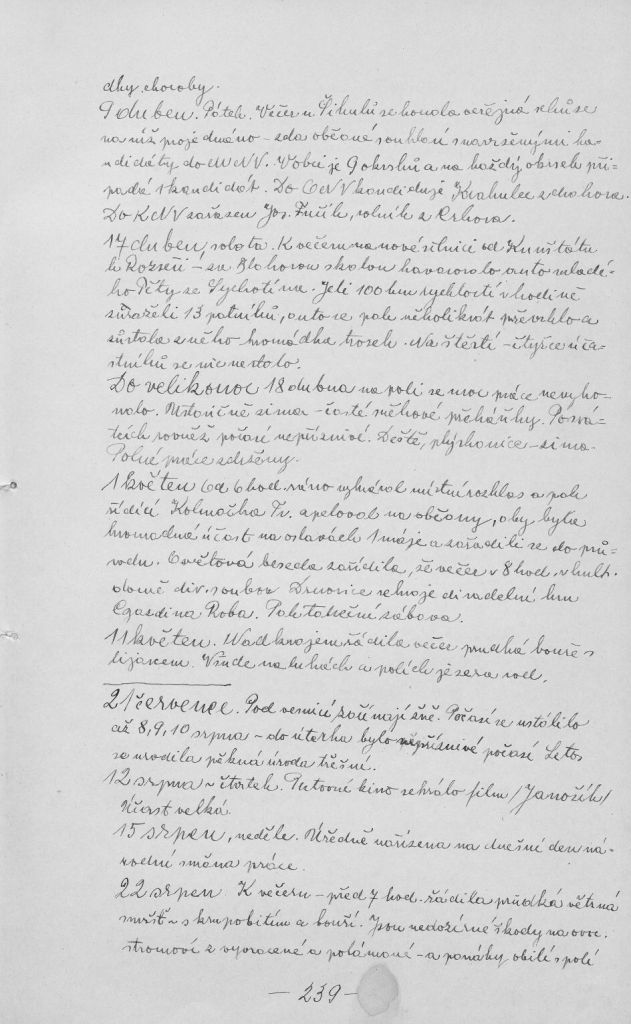 dky choroby.
9 duben. Pátek. Večer u Šikulů se konala veřejná schůze
na níž projednáno – zda občané souhlasí s navrženými ka-
ndidáty do MNV. V obci je 9 okrsků a na každý okrsek při-
padá 1 kandidát. Do ONV kandiduje Krahulec z
Do KNV zařazen Jos. rolník z
17 duben, sobota. K večeru na nové silnici od Kunštátu
k Rozseči – za skalou havarovalo auto mladé-
ho ze Sychotína. Jeli 100 km rychlostí v hodině
sůraželi 13 patníků, auto se pak několikrát převrhlo a
zůstala z něho hromádka trosek. Na štěstí – čtyřce úča-
stníků se nic nestalo.
Do velikonoc 18 dubna na poli se moc práce nevyko-
nalo. Ustavičně zima – časté sněhové přeháňky. Po svá-
tcích rovněž počasí nepříznivé. Deště, plískanice – zima.
Polné práce zdrženy.
1 květen Od 6 hod. ráno vyhrával místní rozhlas a pak
řídící Kolmačka Fr. apeloval na občany, aby byla
hromadná účast na oslavách 1 máje a zařadili se do prů-
vodu. Osvětová beseda zařídila, že večer v 8 hod. v kult.
domě div. soubor Drnovice sehraje divadelní hru
Gazdina Roba. Pak taneční zábava.
11 květen. Nad krajem řádila večer prudká bouře s
lijákem. Všude na lukách a polích jezera vod.
21 července. Pod vesnicí začínají žně. Počasí se ustálilo
až 8, 9, 10 srpna – do úterka bylo nepříznivé počasí Letos
se urodila pěkná úroda třešní.
12 srpna – čtvrtek. Putovní kino sehrálo film /Janošík/
Účast velká.
15 srpen, neděle. Úředně nařízena na dnešní den ná-
rodní směna práce.
22 srpen K večeru – před 7 hod. řádila prudká větrná
smršť – s krupobitím a bouří. Jsou nedozírné škody na ovoc.
stromoví z vyvrácené a polámané – a panáky obilí s polí
— 239 —